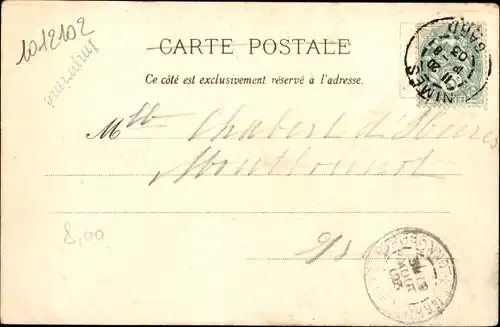 1012102
CARTE POSTALE
Ce côté est exclusivement réservé à l'adresse.
NIMES
GARD
Mlle Chabert d'Hières
Montbonnot
8,00